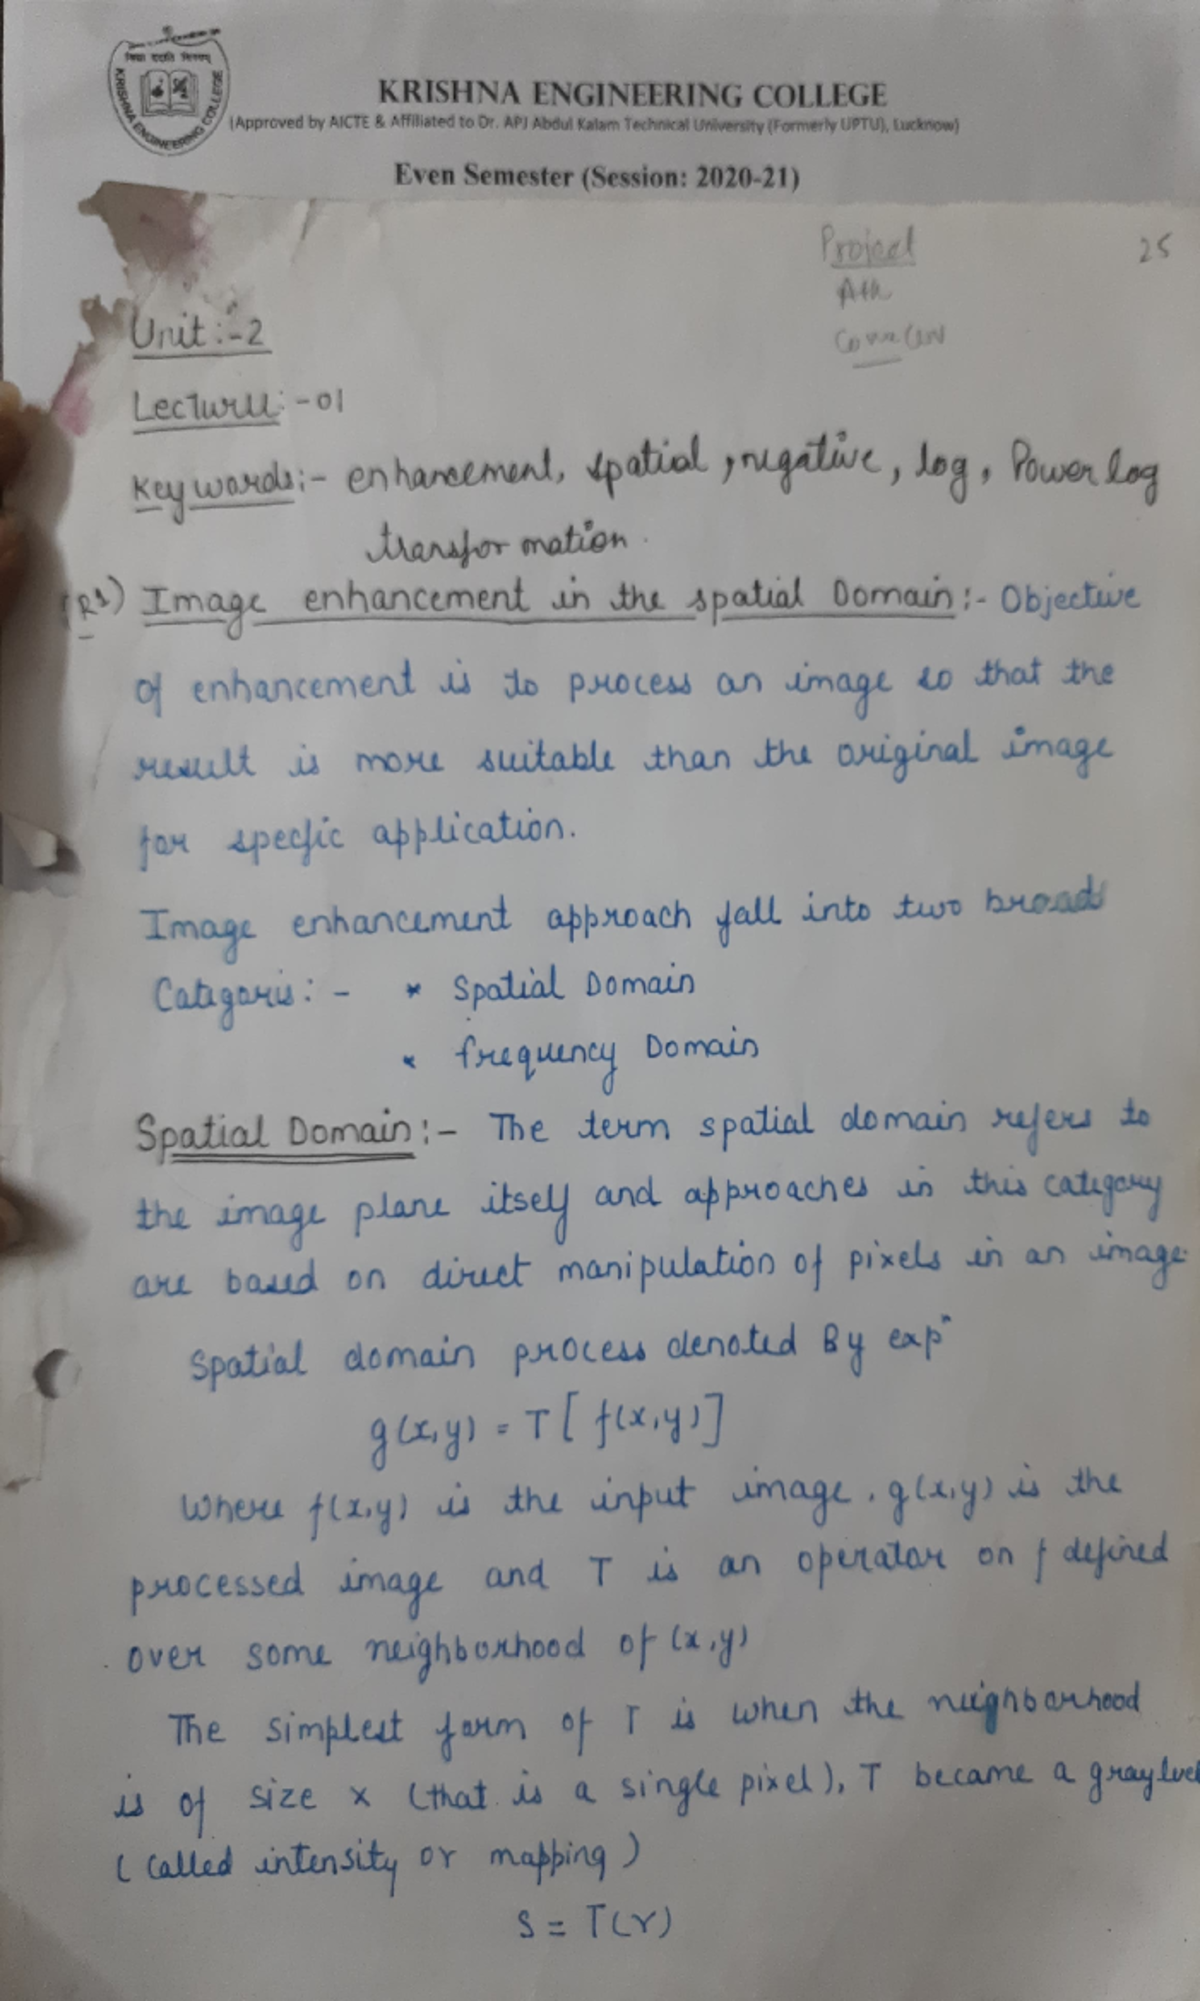 विद्या ददाति विनयम्
KRISHNA ENGINEERING COLLEGE
KRISHNA ENGINEERING COLLEGE
(Approved by AICTE & Affiliated to Dr. APJ Abdul Kalam Technical University (Formerly UPTU), Lucknow)
Even Semester (Session: 2020-21)
Project 25
Unit :-2
Lecture :-01
Keywords:- enhancement, spatial, negative, log, Power log
transformation.
(R1) Image enhancement in the spatial Domain :- Objective
of enhancement is to process an image so that the
result is more suitable than the original image
for specfic application.
Image enhancement approach fall into two broad
Categoris : - * Spatial Domain
* frequency Domain
Spatial Domain :- The term spatial domain refers to
the image plane itself and approaches in this category
are based on direct manipulation of pixels in an image.
Spatial domain process denoted By expⁿ
g(x,y) = T[f(x,y)]
Where f(x,y) is the input image. g(x,y) is the
processed image and T is an operator on f defined
over some neighborhood of (x,y)
The simplest form of T is when the neighborhood
is of size x (that is a single pixel), T became a graylevel
(Called intensity or mapping)
S = T(r)